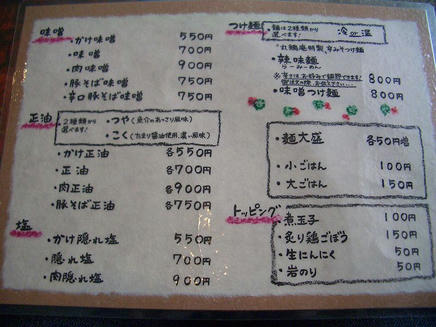 味噌
・かけ味噌 550円
・味噌 700円
・肉味噌 900円
・豚そば味噌 750円
・辛口豚そば味噌 750円
正油
2種類から選べます!
・つや(魚介のあっさり風味)
・こく(たまり醤油使用、濃い風味)
・かけ正油 各550円
・正油 各700円
・肉正油 各900円
・豚そば正油 各750円
塩
・かけ隠れ塩 550円
・隠れ塩 700円
・肉隠れ塩 900円
つけ麺
・麺は2種類から選べます! 冷 or 温
・辣味麺 800円
らーみーめん
・味噌つけ麺 800円
・麺大盛 各50円増
・小ごはん 100円
・大ごはん 150円
トッピング
・煮玉子 100円
・炙り鶏ごぼう 150円
・生にんにく 50円
・岩のり 50円